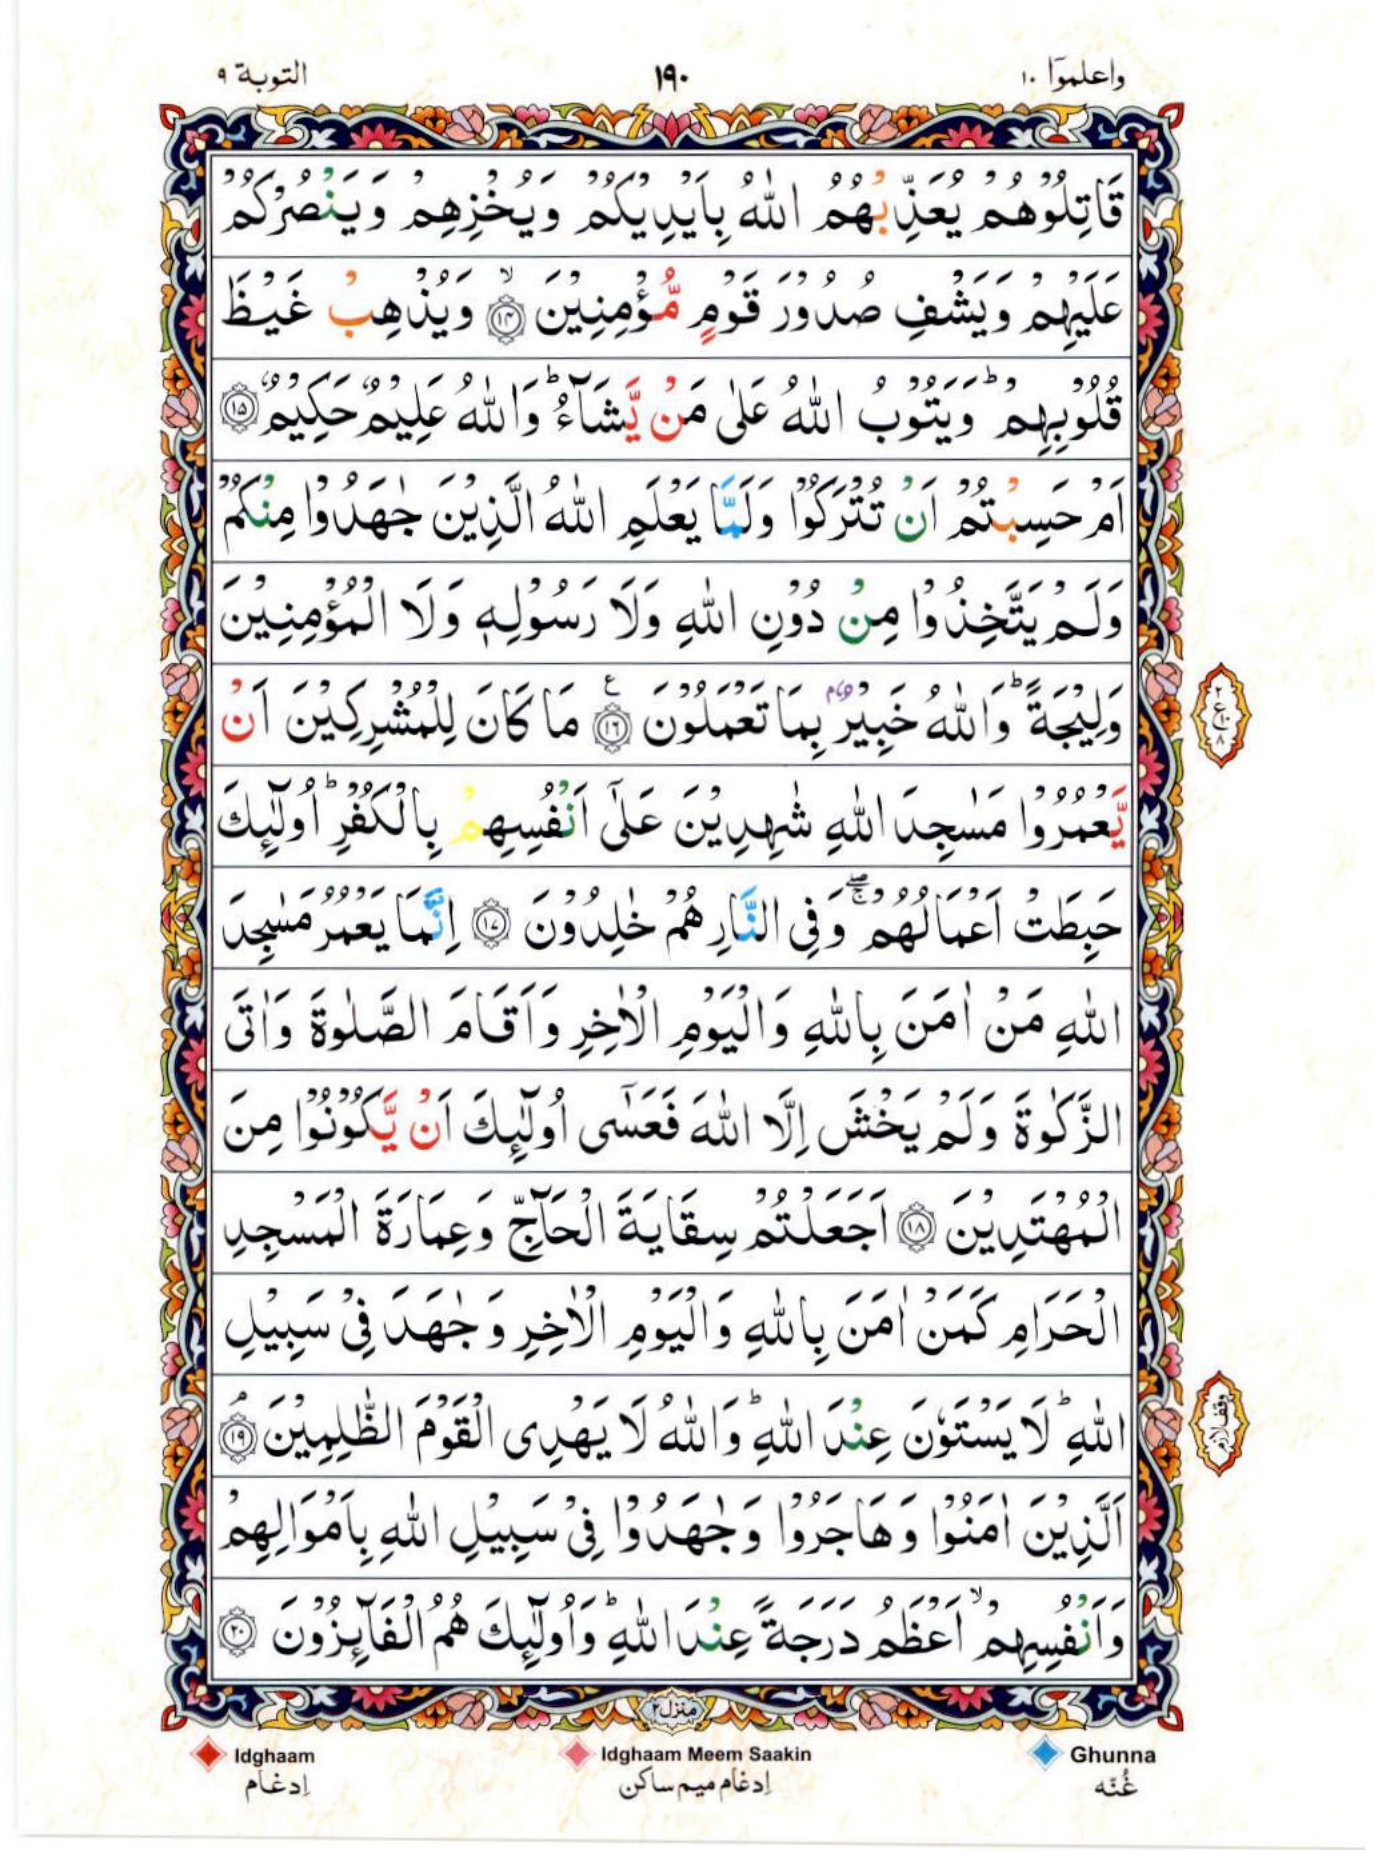 واعلموٓا ۱۰ ۱۹۰ التوبة ۹
قَاتِلُوْهُمْ يُعَذِّبْهُمُ اللّٰهُ بِاَيْدِيْكُمْ وَيُخْزِهِمْ وَيَنْصُرْكُمْ
عَلَيْهِمْ وَيَشْفِ صُدُوْرَ قَوْمٍ مُّؤْمِنِيْنَ ۙ‏﴿۱۴﴾ وَيُذْهِبْ غَيْظَ
قُلُوْبِهِمْ ؕ وَيَتُوْبُ اللّٰهُ عَلٰى مَنْ يَّشَآءُ ؕ وَاللّٰهُ عَلِيْمٌ حَكِيْمٌ ﴿۱۵﴾
اَمْ حَسِبْتُمْ اَنْ تُتْرَكُوْا وَلَمَّا يَعْلَمِ اللّٰهُ الَّذِيْنَ جٰهَدُوْا مِنْكُمْ
وَلَمْ يَتَّخِذُوْا مِنْ دُوْنِ اللّٰهِ وَلَا رَسُوْلِهٖ وَلَا الْمُؤْمِنِيْنَ
وَلِيْجَةً ؕ وَاللّٰهُ خَبِيْرٌۢ بِمَا تَعْمَلُوْنَ ﴿۱۶﴾ ع مَا كَانَ لِلْمُشْرِكِيْنَ اَنْ
۲ ع ۱۰ ۸
يَّعْمُرُوْا مَسٰجِدَ اللّٰهِ شٰهِدِيْنَ عَلٰٓى اَنْفُسِهِمْ بِالْكُفْرِ ؕ اُولٰٓئِكَ
حَبِطَتْ اَعْمَالُهُمْ ۖۚ وَفِى النَّارِ هُمْ خٰلِدُوْنَ ﴿۱۷﴾ اِنَّمَا يَعْمُرُ مَسٰجِدَ
اللّٰهِ مَنْ اٰمَنَ بِاللّٰهِ وَالْيَوْمِ الْاٰخِرِ وَاَقَامَ الصَّلٰوةَ وَاٰتَى
الزَّكٰوةَ وَلَمْ يَخْشَ اِلَّا اللّٰهَ فَعَسٰٓى اُولٰٓئِكَ اَنْ يَّكُوْنُوْا مِنَ
الْمُهْتَدِيْنَ ﴿۱۸﴾ اَجَعَلْتُمْ سِقَايَةَ الْحَآجِّ وَعِمَارَةَ الْمَسْجِدِ
الْحَرَامِ كَمَنْ اٰمَنَ بِاللّٰهِ وَالْيَوْمِ الْاٰخِرِ وَجٰهَدَ فِىْ سَبِيْلِ
اللّٰهِ ؕ لَا يَسْتَوٗنَ عِنْدَ اللّٰهِ ؕ وَاللّٰهُ لَا يَهْدِى الْقَوْمَ الظّٰلِمِيْنَ ۘ‏﴿۱۹﴾
وقف لازم
اَلَّذِيْنَ اٰمَنُوْا وَهَاجَرُوْا وَجٰهَدُوْا فِىْ سَبِيْلِ اللّٰهِ بِاَمْوَالِهِمْ
وَاَنْفُسِهِمْ ۙ اَعْظَمُ دَرَجَةً عِنْدَ اللّٰهِ ؕ وَاُولٰٓئِكَ هُمُ الْفَآئِزُوْنَ ﴿۲۰﴾
منزل ۲
Ghunna Idghaam Meem Saakin Idghaam
غُنّه اِدغام میم ساکن اِدغام